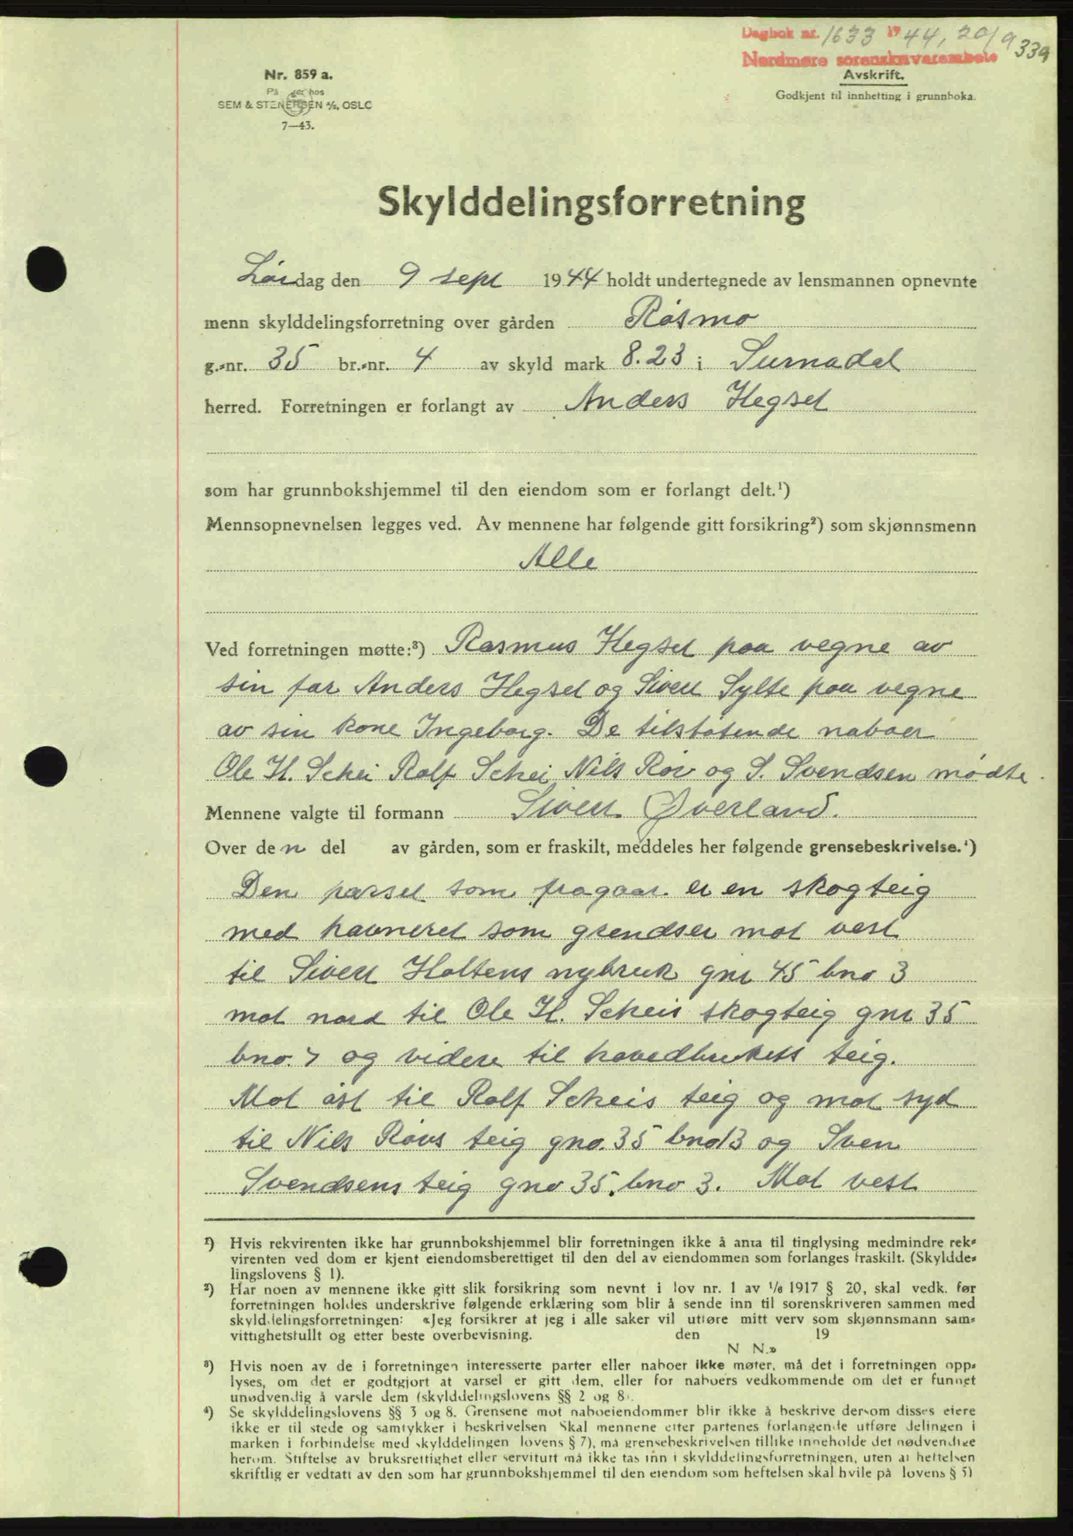 Dagbok nr. 1633 1944, 20/9
339
Nordmøre sorenskriverembete
Nr. 859 a.
På lager hos
SEM & STENERSEN A/S, OSLO
7—43.
Avskrift.
Godkjent til innhefting i grunnboka.
Skylddelingsforretning
Lørdag den 9 sept 1944 holdt undertegnede av lensmannen opnevnte
menn skylddelingsforretning over gården Røsmo
g.-nr. 35 br.-nr. 4 av skyld mark 8.23 i Surnadal
herred. Forretningen er forlangt av Anders Hegset
som har grunnbokshjemmel til den eiendom som er forlangt delt.¹)
Mennsopnevnelsen legges ved. Av mennene har følgende gitt forsikring²) som skjønnsmenn
Alle
Ved forretningen møtte:³) Rasmus Hegset paa vegne av
sin far Anders Hegset og Sivert Sylte paa vegne
av sin kone Ingeborg. De tilstøtende naboer
Ole H. Schei Rolf Schei Nils Røv og S. Svendsen mødte.
Mennene valgte til formann Sivert Øverland.
Over den del av gården, som er fraskilt, meddeles her følgende grensebeskrivelse.⁴)
Den parsel som fragaar er en skogteig
med havneret som grendser mot vest
til Sivert Holtens nybruk gnr 45 bno 3
mot nord til Ole H. Scheis skogteig gnr 35
bno. 7 og videre til hovedbrukets teig.
Mot øst til Rolf Scheis teig og mot syd
til Nils Røvs teig gno. 35 bno 13 og Sven
Svendsens teig gno 35, bno 3. Mot vest
¹) Hvis rekvirenten ikke har grunnbokshjemmel blir forretningen ikke å anta til tinglysing medmindre rek-
virenten ved dom er kjent eiendomsberettiget til den del av eiendommen som forlanges fraskilt. (Skyldde-
lingslovens § 1).
²) Har noen av mennene ikke gitt slik forsikring som nevnt i lov nr. 1 av 1/6 1917 § 20, skal vedk. før
forretningen holdes underskrive følgende erklæring som blir å sende inn til sorenskriveren sammen med
skylddelingsforretningen: «Jeg forsikrer at jeg i alle saker vil utføre mitt verv som skjønnsmann sam-
vittighetsfullt og etter beste overbevisning. den 19
N N.»
³) Hvis noen av de i forretningen interesserte parter eller naboer ikke møter, må det i forretningen opp-
lyses, om det er godtgjort at varsel er gitt dem, eller for naboers vedkommende om det er funnet
unødvendig å varsle dem (skylddelingslovens §§ 2 og 8).
⁴) Se skylddelingslovens §§ 3 og 8. Grensene mot naboeiendommer blir ikke å beskrive dersom disses eiere
ikke er til stede og samtykker i beskrivelsen Skal mennene etter partenes forlangende utføre delingen i
marken i forbindelse med skylddelingen lovens § 7), må grensebeskrivelsen tillike inneholde det nødvendige
herom. Stiftelse av bruksrettighet eller servitutt må ikke tas inn i skylddelingsforretningen, uten at heftelsen
skriftlig er vedtatt av den som har grunnbokshjemmel til den eiendom som heftelsen skal hvile på lovens § 5)